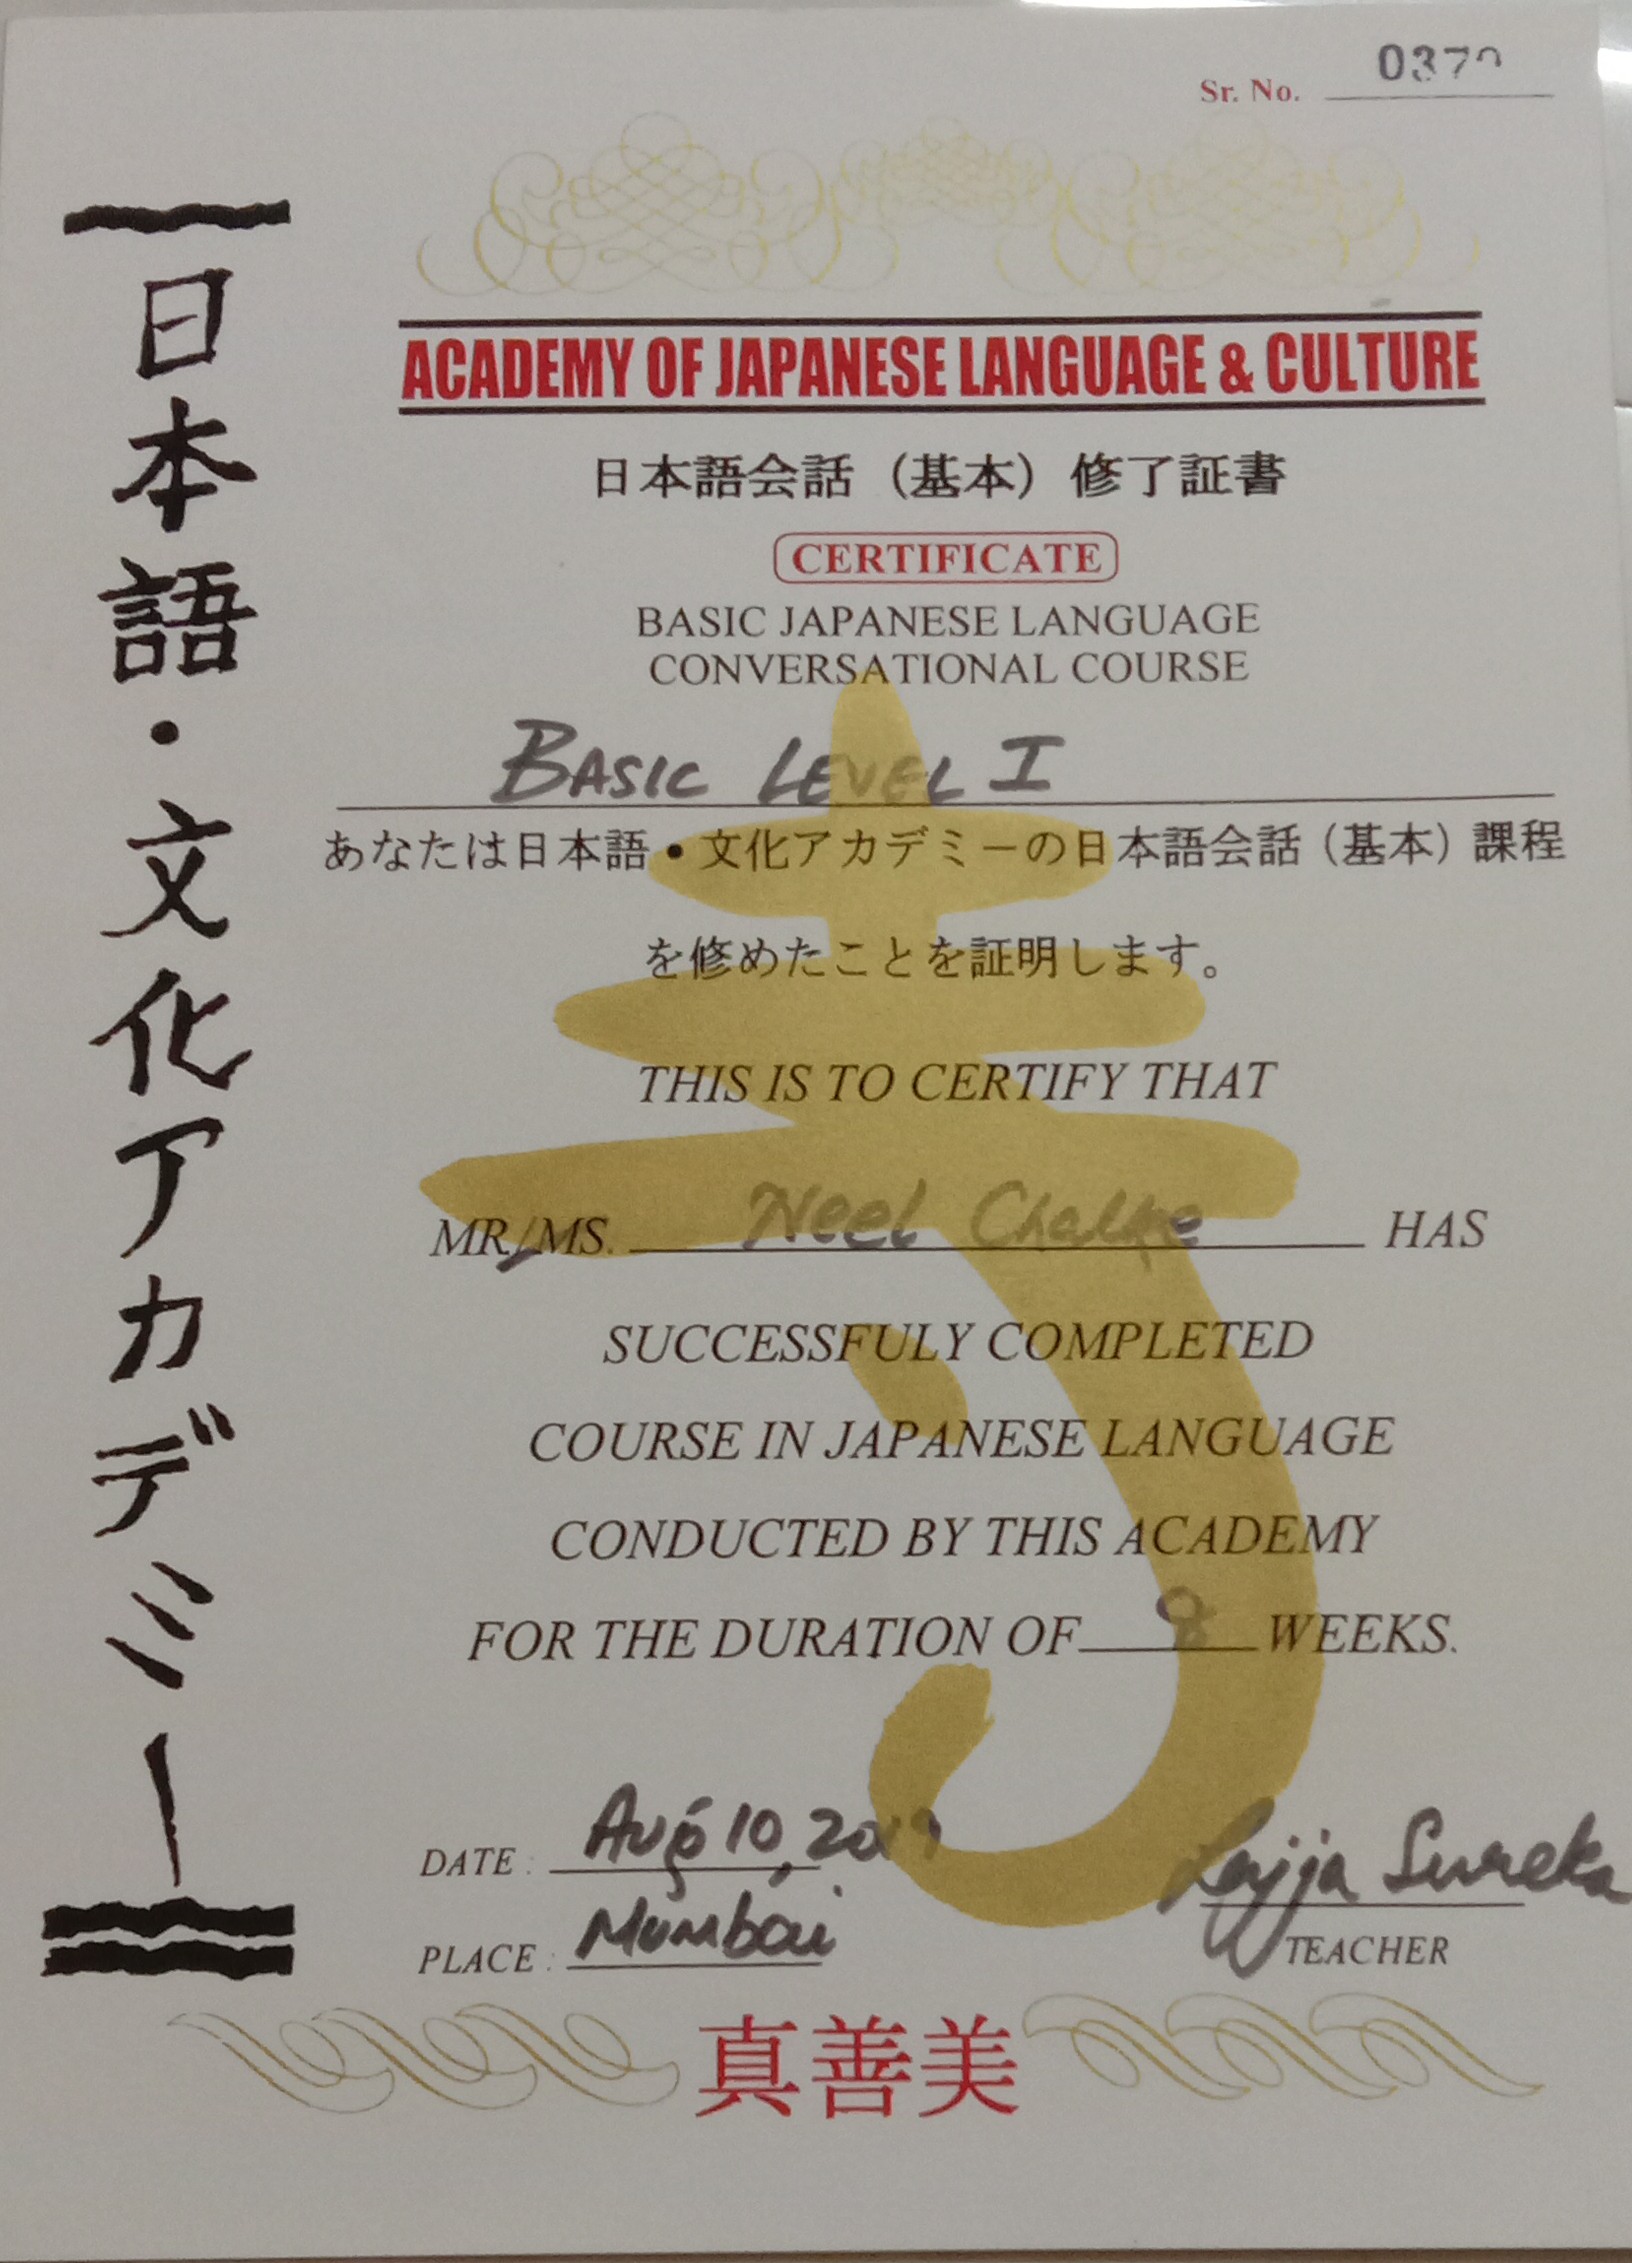 Sr. No.
日本語・文化アカデミー
ACADEMY OF JAPANESE LANGUAGE & CULTURE
日本語会話（基本）修了証書
CERTIFICATE
BASIC JAPANESE LANGUAGE
CONVERSATIONAL COURSE
BASIC LEVEL I
あなたは日本語・文化アカデミーの日本語会話（基本）課程
を修めたことを証明します。
THIS IS TO CERTIFY THAT
MR/MS. Neel HAS
SUCCESSFULY COMPLETED
COURSE IN JAPANESE LANGUAGE
CONDUCTED BY THIS ACADEMY
FOR THE DURATION OF 8 WEEKS.
DATE : Aug 10, 2019
PLACE : Mumbai
Lajja Sureka
TEACHER
真善美